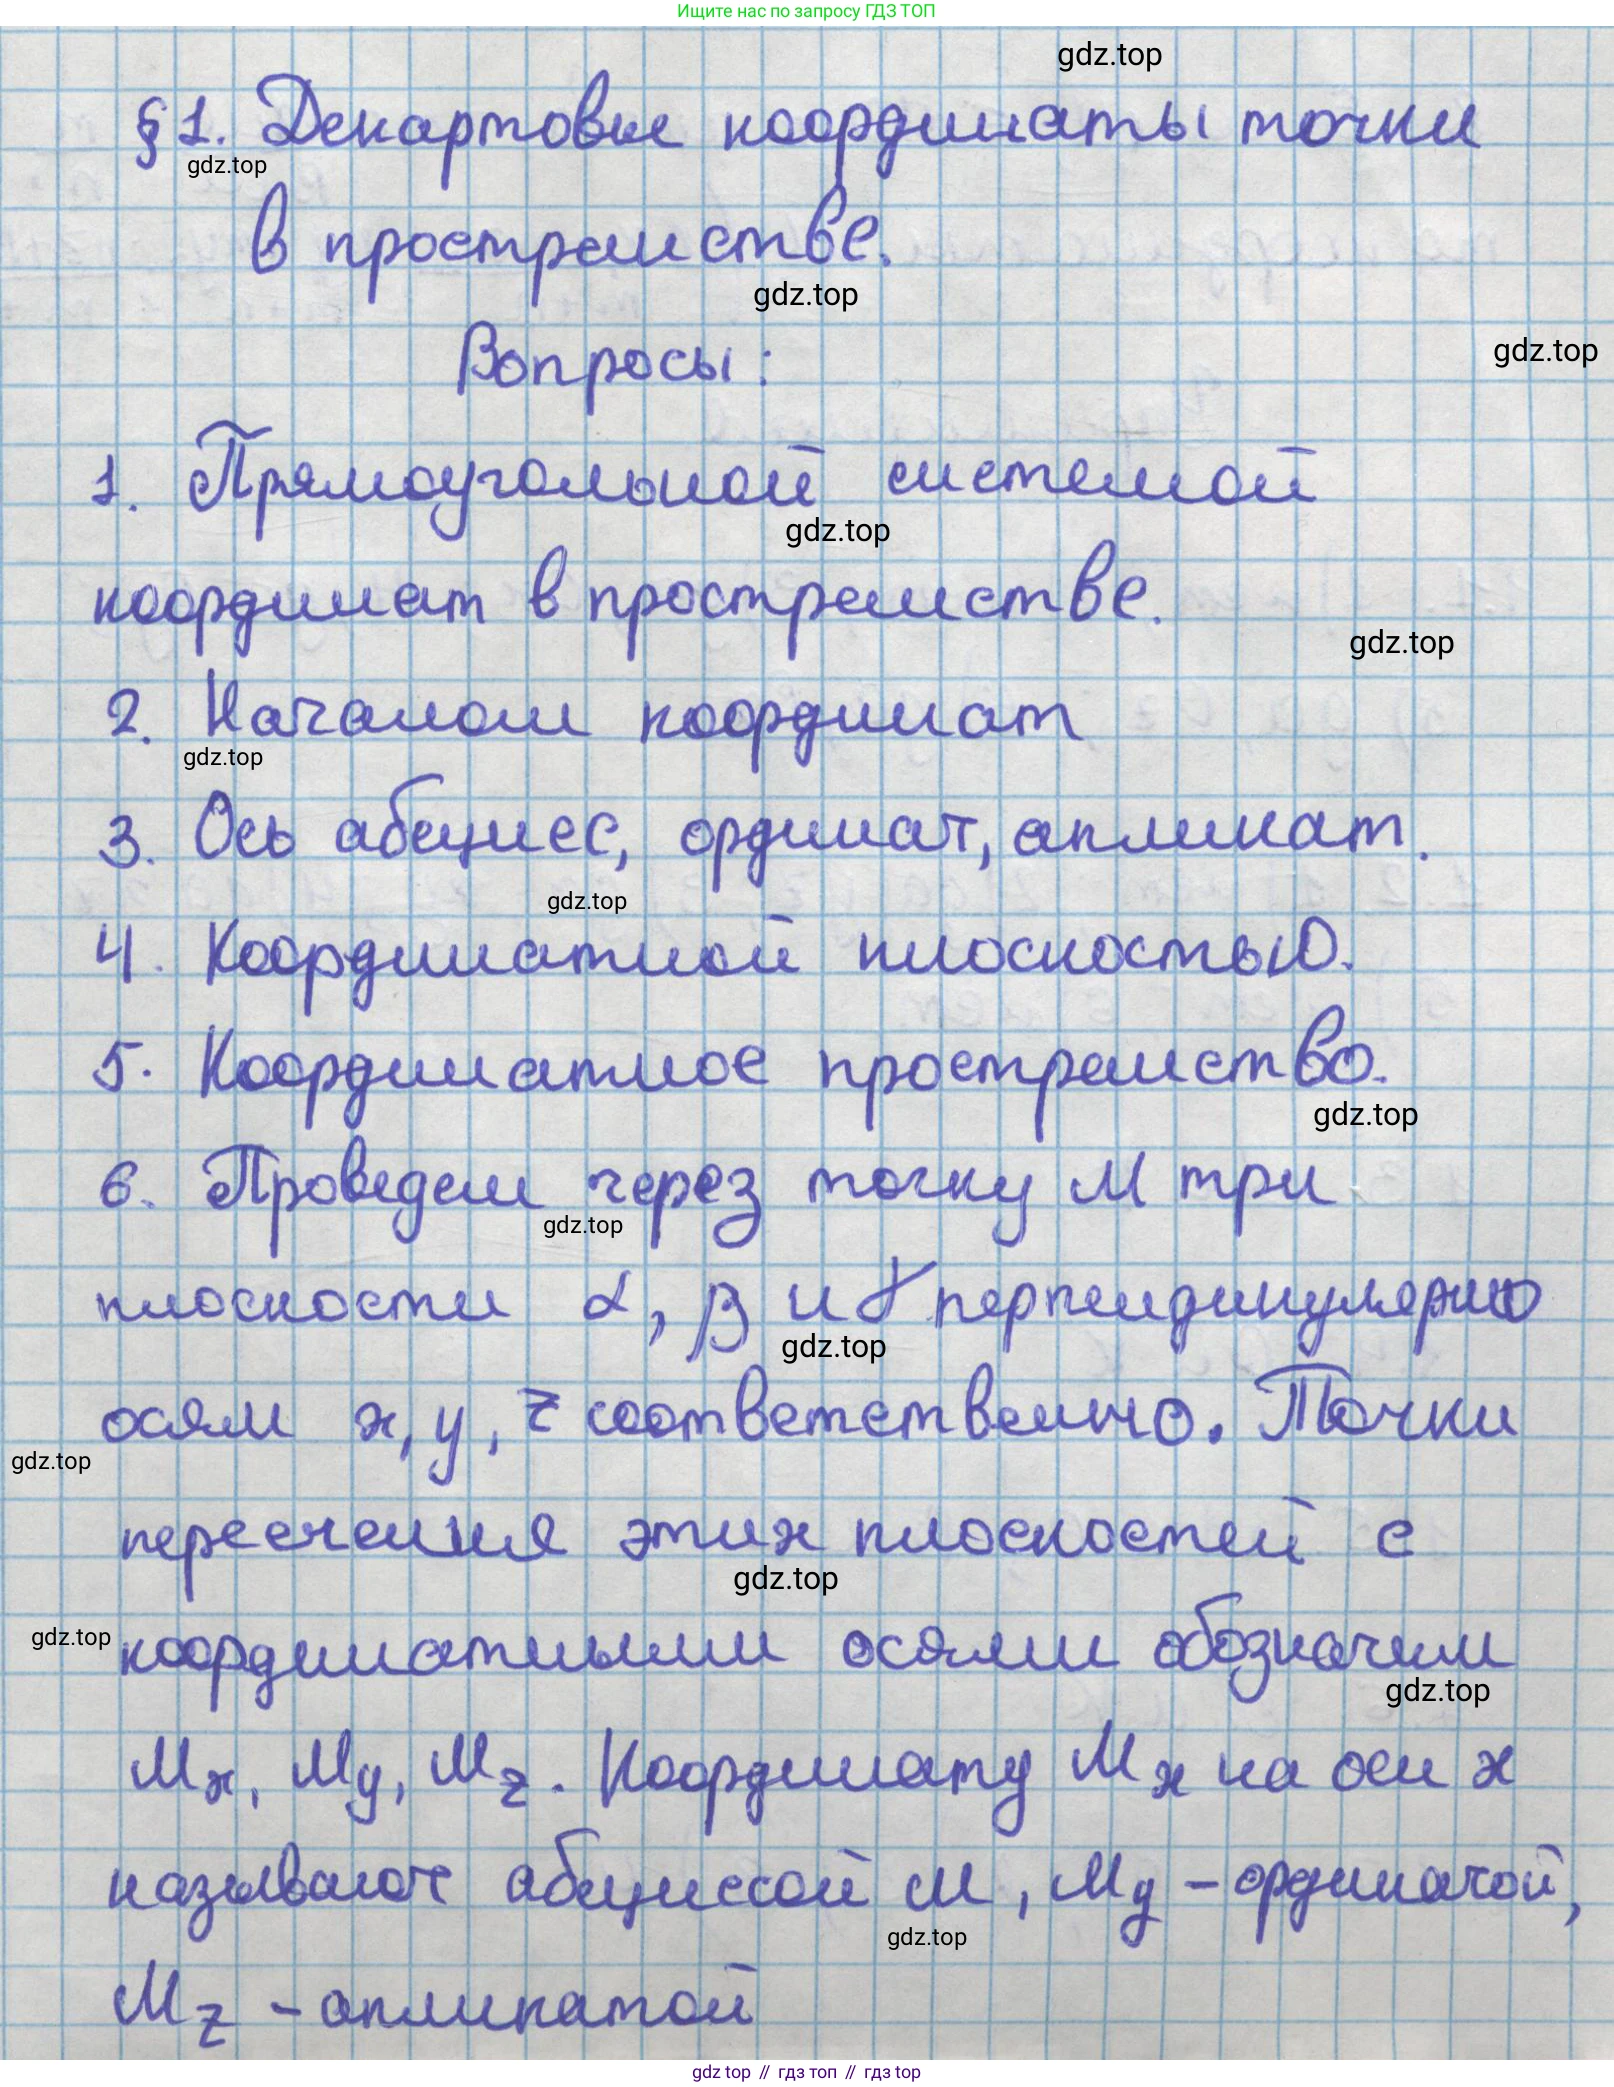 Ищите нас по запросу ГДЗ ТОП
gdz.top
§1. Декартовы координаты точки
gdz.top
в пространстве.
gdz.top
Вопросы:
gdz.top
1. Прямоугольной системой
gdz.top
координат в пространстве.
gdz.top
2. Началом координат
gdz.top
3. Ось абсцисс, ординат, апликат.
gdz.top
4. Координатной плоскостью.
5. Координатное пространство.
gdz.top
6. Проведем через точку М три
gdz.top
плоскости α, β и γ перпендикулярно
gdz.top
осям x, y, z соответственно. Точки
gdz.top
пересечения этих плоскостей с
gdz.top
gdz.top координатными осями обозначим
gdz.top
Mx, My, Mz. Координату Mx на оси x
называют абсциссой М, My - ординатой,
gdz.top
Mz - апликатой
gdz top // гдз топ // гдз top